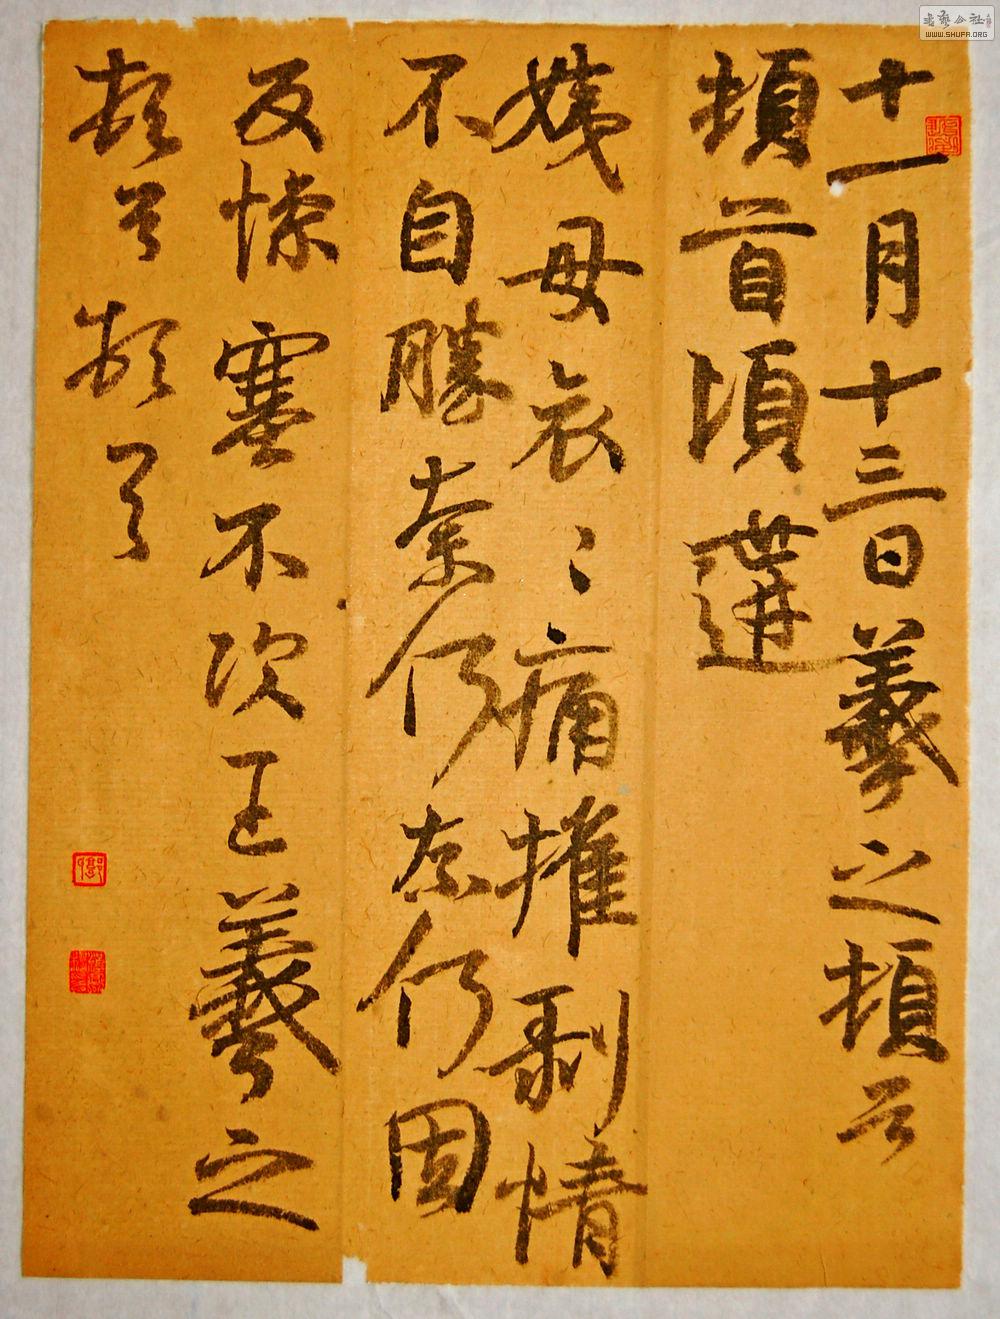 十一月十三日羲之頓首
頓首頃遘
姨母哀〻痛摧剝情
不自勝奈何奈何因
反慘塞不次王羲之
頓首頓首
書藝公社
WWW.SHUFA.ORG